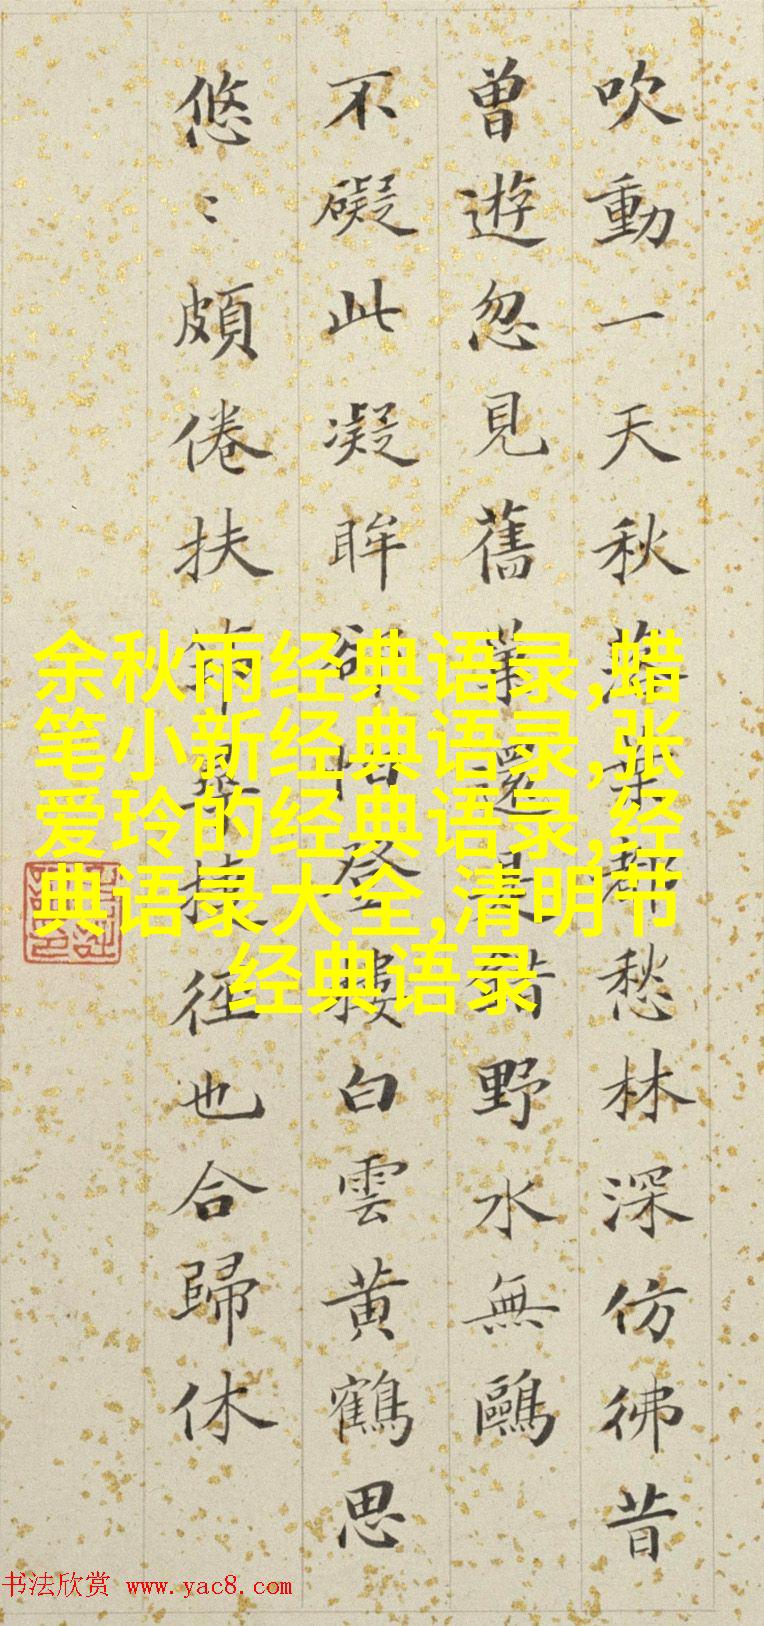 吹動一天秋落葉都愁林深仿彿昔
曾遊忽見舊還是野水無鷗
不礙此凝眸卻怕登樓白雲黃鶴思
悠〻頗倦扶捷徑也合歸休
余秋雨经典语录,蜡
笔小新经典语录,张
爱玲的经典语录,经
典语录大全,清明节
经典语录
书法欣赏 www.yac8.com